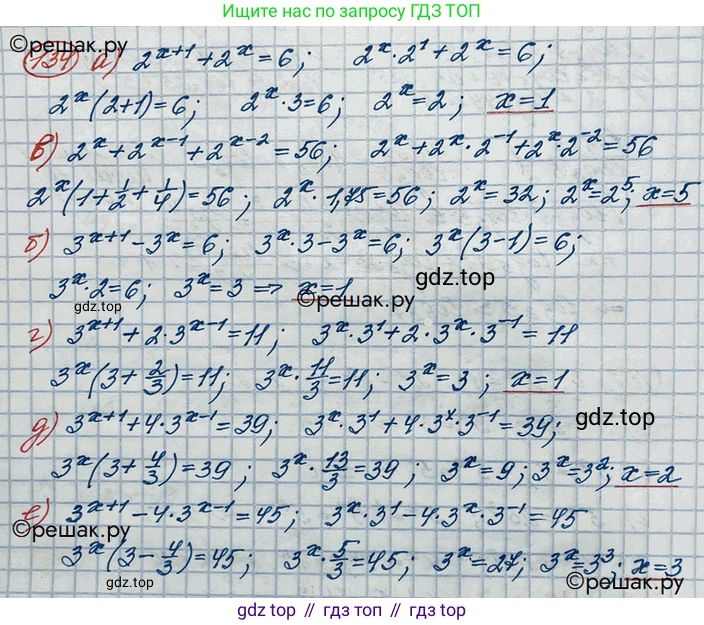 Ищите нас по запросу ГДЗ ТОП
©reшак.ру
134 а) 2^(x+1) + 2^x = 6; 2^x · 2^1 + 2^x = 6;
2^x (2+1) = 6; 2^x · 3 = 6; 2^x = 2; x = 1
в) 2^x + 2^(x-1) + 2^(x-2) = 56; 2^x + 2^x · 2^(-1) + 2^x · 2^(-2) = 56
2^x (1 + 1/2 + 1/4) = 56; 2^x · 1,75 = 56; 2^x = 32; 2^x = 2^5; x = 5
б) 3^(x+1) - 3^x = 6; 3^x · 3 - 3^x = 6; 3^x (3-1) = 6;
gdz.top
3^x · 2 = 6; 3^x = 3 => x = 1
gdz.top ©reшак.ру
г) 3^(x+1) + 2 · 3^(x-1) = 11; 3^x · 3^1 + 2 · 3^x · 3^(-1) = 11
3^x (3 + 2/3) = 11; 3^x · 11/3 = 11; 3^x = 3; x = 1
gdz.top
д) 3^(x+1) + 4 · 3^(x-1) = 39; 3^x · 3^1 + 4 · 3^x · 3^(-1) = 39;
3^x (3 + 4/3) = 39; 3^x · 13/3 = 39; 3^x = 9; 3^x = 3^2; x = 2
е) 3^(x+1) - 4 · 3^(x-1) = 45; 3^x · 3^1 - 4 · 3^x · 3^(-1) = 45
©reшак.ру
3^x (3 - 4/3) = 45; 3^x · 5/3 = 45; 3^x = 27; 3^x = 3^3; x = 3
gdz.top ©reшак.ру
gdz.top // гдз топ // gdz top